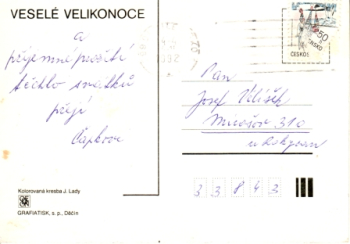 VESELÉ VELIKONOCE
a
příjemné prožití
těchto svátků
přejí
Čapkova
Kolorovaná kresba J. Lady
GRAFIATISK, s. p., Děčín
50
ČESKOS
Pan
Josef Věříšek
Mirošov 310
u Rokycan
33843